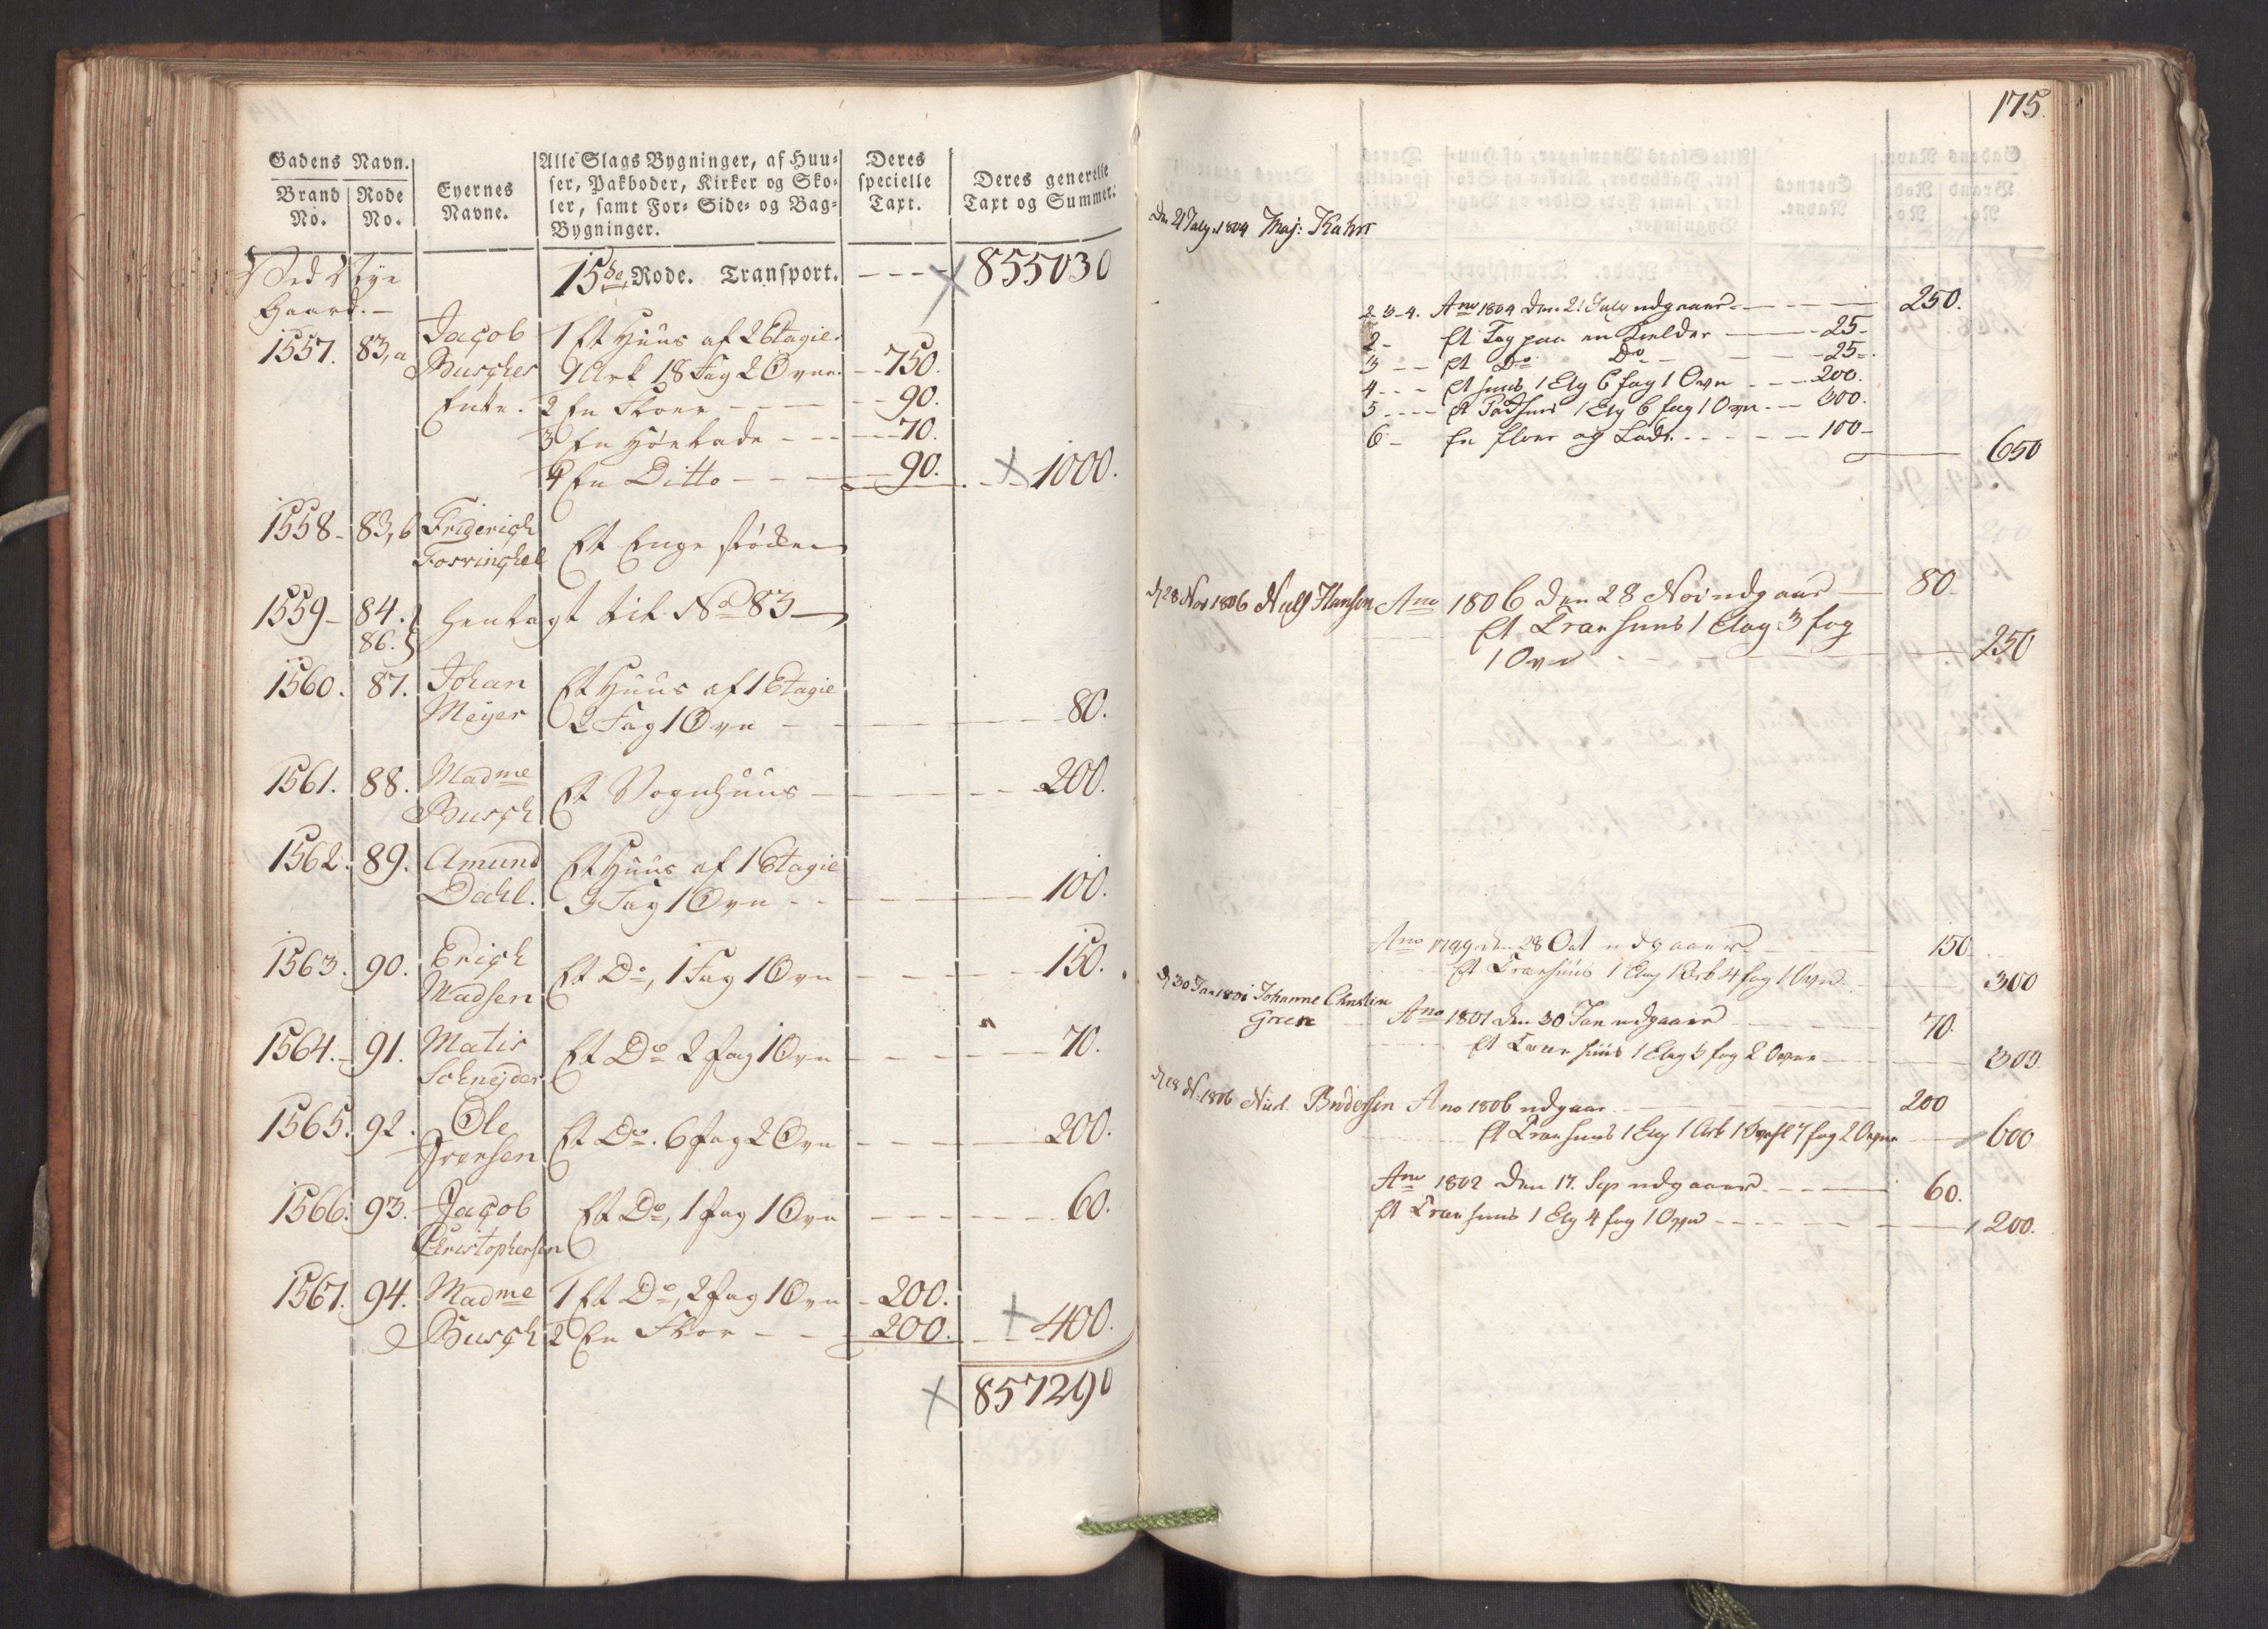 Gadens Navn.
Brand No. Rode No.
Eyernes Navne.
Alle Slags Bygninger, af Huu-
ser, Pakboder, Kirker og Sko-
ler, samt For- Side- og Bag-
Bygninger.
Deres specielle Taxt.
Deres generelle Taxt og Summer.
Ved Nye 15de Rode. Transport. 855030
Gaard.
1557. 83,a Jacob 1 Et Huus af 2 Etagie
Buscher 1 Ark 18 Fag 2 Ovne 750.
Enke. 2 En Floer 90.
3 En Høelade 70.
4 En Ditto 90. 1000.
1558 83,b Friderich Et Enge støcke
Forringhel
1559 84. henlagt til No 83
86.
1560. 87. Johan Et Huus af 1 Etagie
Meyer 2 Fag 1 Ovn 80.
1561. 88. Madme Et Vognhuus 200.
Busch
1562. 89. Amund Et Huus af 1 Etagie
Dahl. 3 Fag 1 Ovn 100.
1563. 90. Erich Et Do, 1 Fag 1 Ovn 150.
Madsen
1564. 91. Matis Et Do 2 fag 1 Ovn 70.
Schnejder
1565. 92. Ole Et Do. 6 fag 2 Ovn 200.
Iversen
1566. 93. Jacob Et Do, 1 fag 1 Ovn 60.
Christophersen
1567. 94. Madme 1 Et Do, 2 fag 1 Ovn 200.
Busch 2 En Flor 200. 400.
857290
175.
Den 21 July 1804 Maj: Kahrs
2-3-4. Ano 1804 den 21 July udgaaer 250.
2 Et Tag paa en Kielder 25
3 Et Do Do 25
4 Et huus 1 Etg 6 fag 1 Ovn 200.
5 1 Etg 6 fag 1 Ovn 300.
6 En floer og Lade 100
650
d 28 Nov 1806 Niels Hansen Ano 1806 den 28 Nov udgaaer 80
Et Træe huus 1 Etag 3 fag
1 Ovn 250
Ano 1799 den 28 Oct udgaaer 150
Et Træehuus 1 Etag 1 Ark 4 fag 1 Ovn 300
d 30 Jan 1801 Johanne Christine
Green Ano 1801 den 30 Jan udgaaer 70
Et Træe huus 1 Etag 5 fag 2 Ovne 300
d 28 N. 1806 Brodersen Ano 1806 udgaar 200
Et Træe huus 1 Etg 1 Ark 1 7 fag 2 Ovne 600
Ano 1802 den 17. Sep udgaaer 60.
Et Træe huus 1 Etg 4 fag 1 Ovn 200.